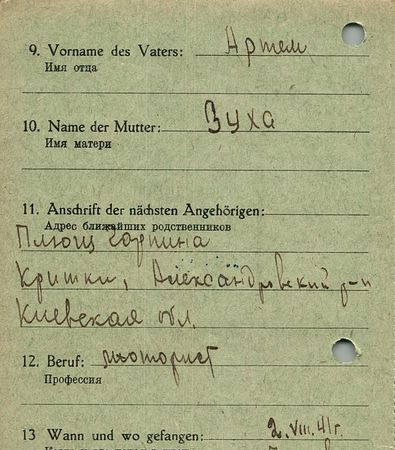 9. Vorname des Vaters: Артем
Имя отца
10. Name der Mutter: Зуха
Имя матери
11. Anschrift der nächsten Angehörigen:
Адрес ближайших родственников
Плющ
Кришки, Александровский р-н
Киевская обл.
12. Beruf:
Профессия
13 Wann und wo gefangen: 2.VIII.41г.